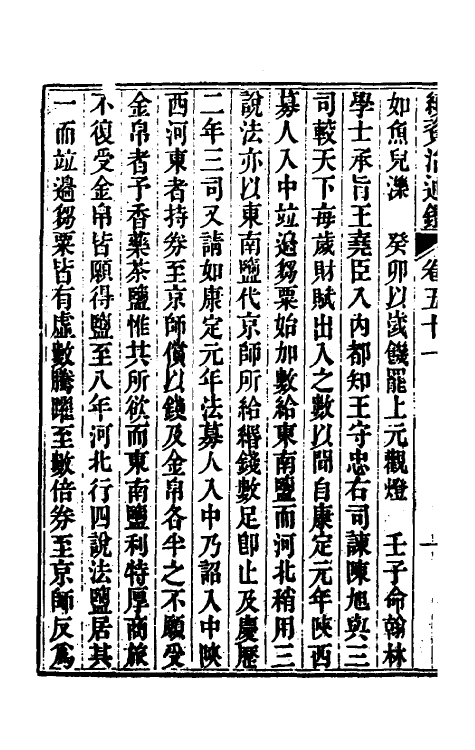 續資治通鑑 卷五十一
如魚兒濼 癸卯以歲饑罷上元觀燈 壬子命翰林
學士承旨王堯臣入內都知王守忠右司諫陳旭與三
司較天下每歲財賦出入之數以聞自康定元年陝西
募人入中竝邊芻粟始加數給東南鹽而河北稍用三
說法亦以東南鹽代京師所給緡錢數足卽止及慶歷
二年三司又請如康定元年法募人入中乃詔入中陝
西河東者持券至京師償以錢及金帛各半之不願受
金帛者予香藥茶鹽惟其所欲而東南鹽利特厚商旅
不復受金帛皆願得鹽至八年河北行四說法鹽居其
一而竝邊芻粟皆有虛數騰躍至數倍券至京師反爲